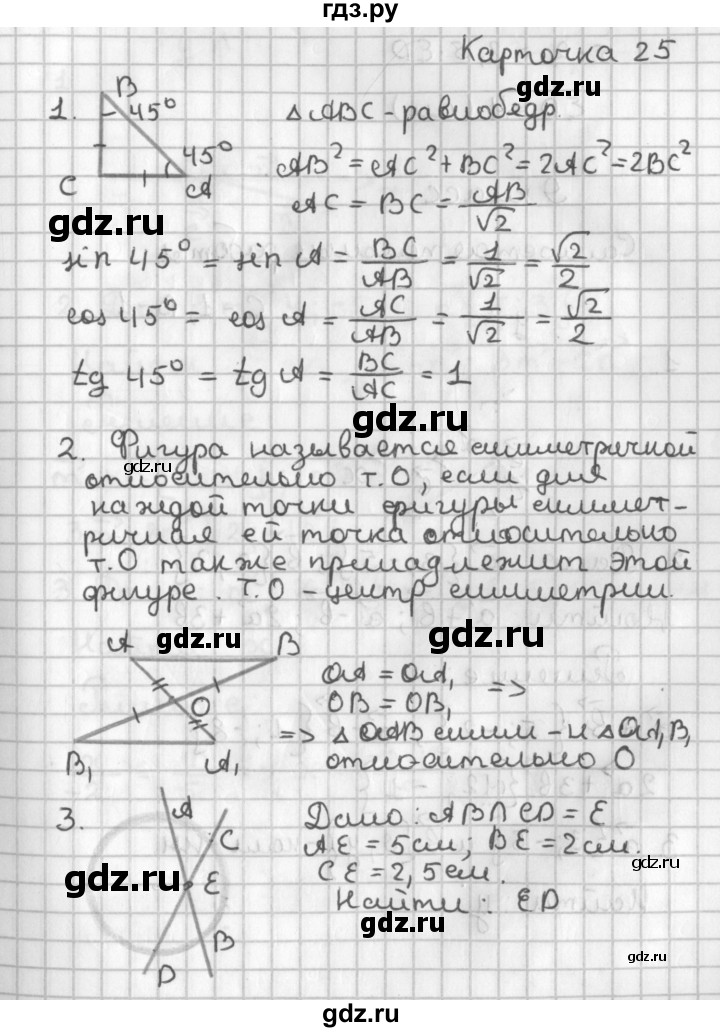 гдз.ру
Карточка 25
1. B 45° 45° C A
△ABC - равнобедр.
AB² = AC² + BC² = 2AC² = 2BC²
AC = BC = AB/√2
gdz.ru
gdz.ru
sin 45° = sin A = BC/AB = 1/√2 = √2/2
cos 45° = cos A = AC/AB = 1/√2 = √2/2
tg 45° = tg A = BC/AC = 1
gdz.ru
2. Фигура называется симметричной
gdz.ru
относительно т.О, если для
каждой точки фигуры симмет-
ричная ей точка относительно
т.О также принадлежит этой
фигуре. т.О - центр симметрии.
gdz.ru
gdz.ru
A B O B₁ A₁
OA = OA₁
OB = OB₁ =>
=> △OAB симм-н △OA₁B₁
относительно O
3. A C E B D
Дано: AB∩CD = E
AE = 5см; BE = 2см.
CE = 2,5см.
Найти: ED
gdz.ru
gdz.ru
gdz.ru
gdz.ru
gdz.ru